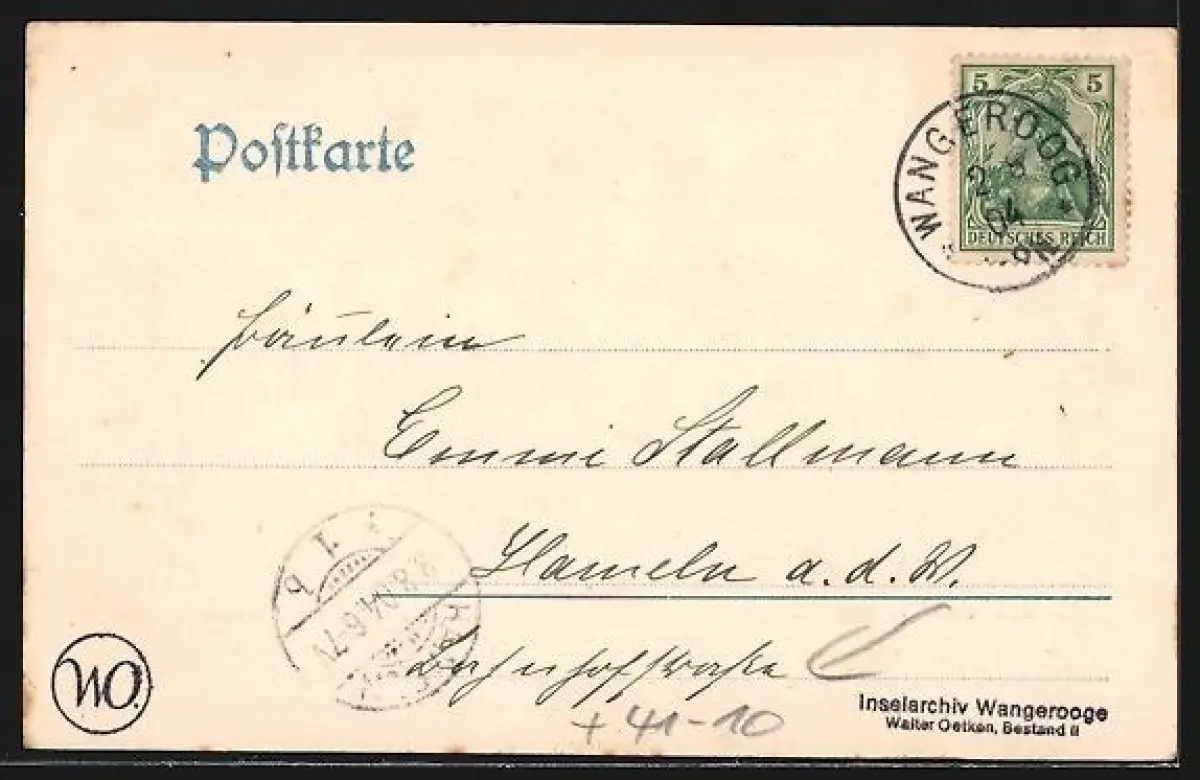 Postkarte
5 5
DEUTSCHES REICH
WANGEROOG
2 8
04
Fräulein
Emmi Stallmann
Hameln a. d. W.
Bahnhofstraße
3.8.04.6-7V
WO.
+ 41-10
Inselarchiv Wangerooge
Walter Oetken, Bestand II